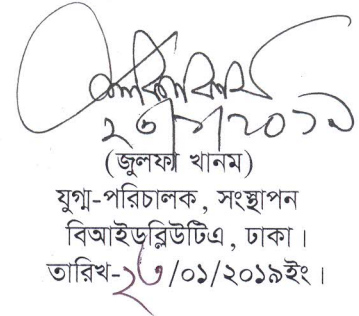 ২৩/১/২০১৯
(জুলফা খানম)
যুগ্ম-পরিচালক, সংস্থাপন
বিআইডব্লিউটিএ, ঢাকা।
তারিখ-২৩/০১/২০১৯ইং।